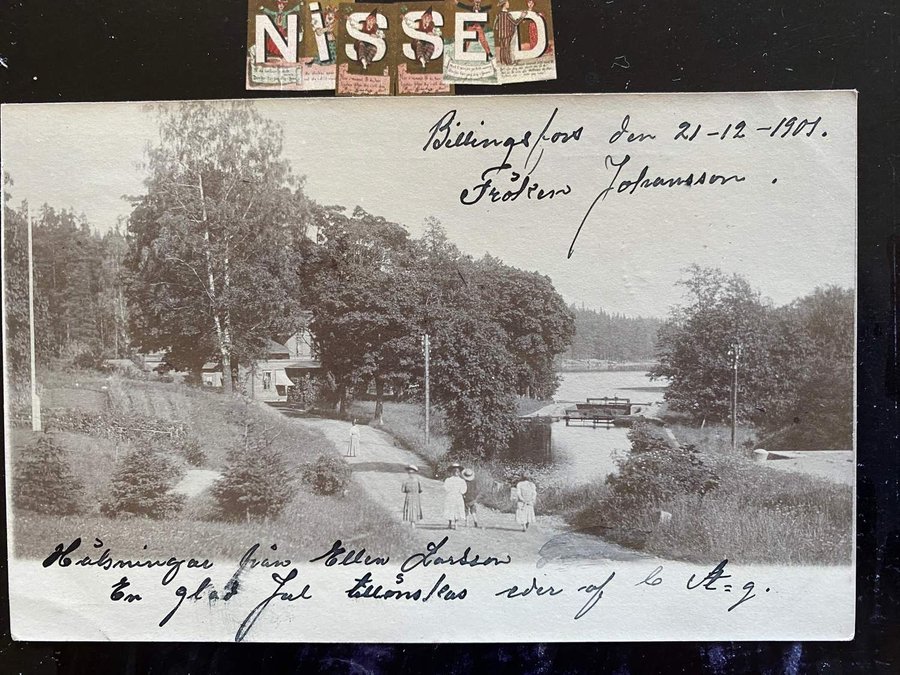 NISSED
Billingsfors den 21-12-1901.
Fröken Johansson.
Hälsningar från Ellen Larsson
En glad Jul tillönskas eder af